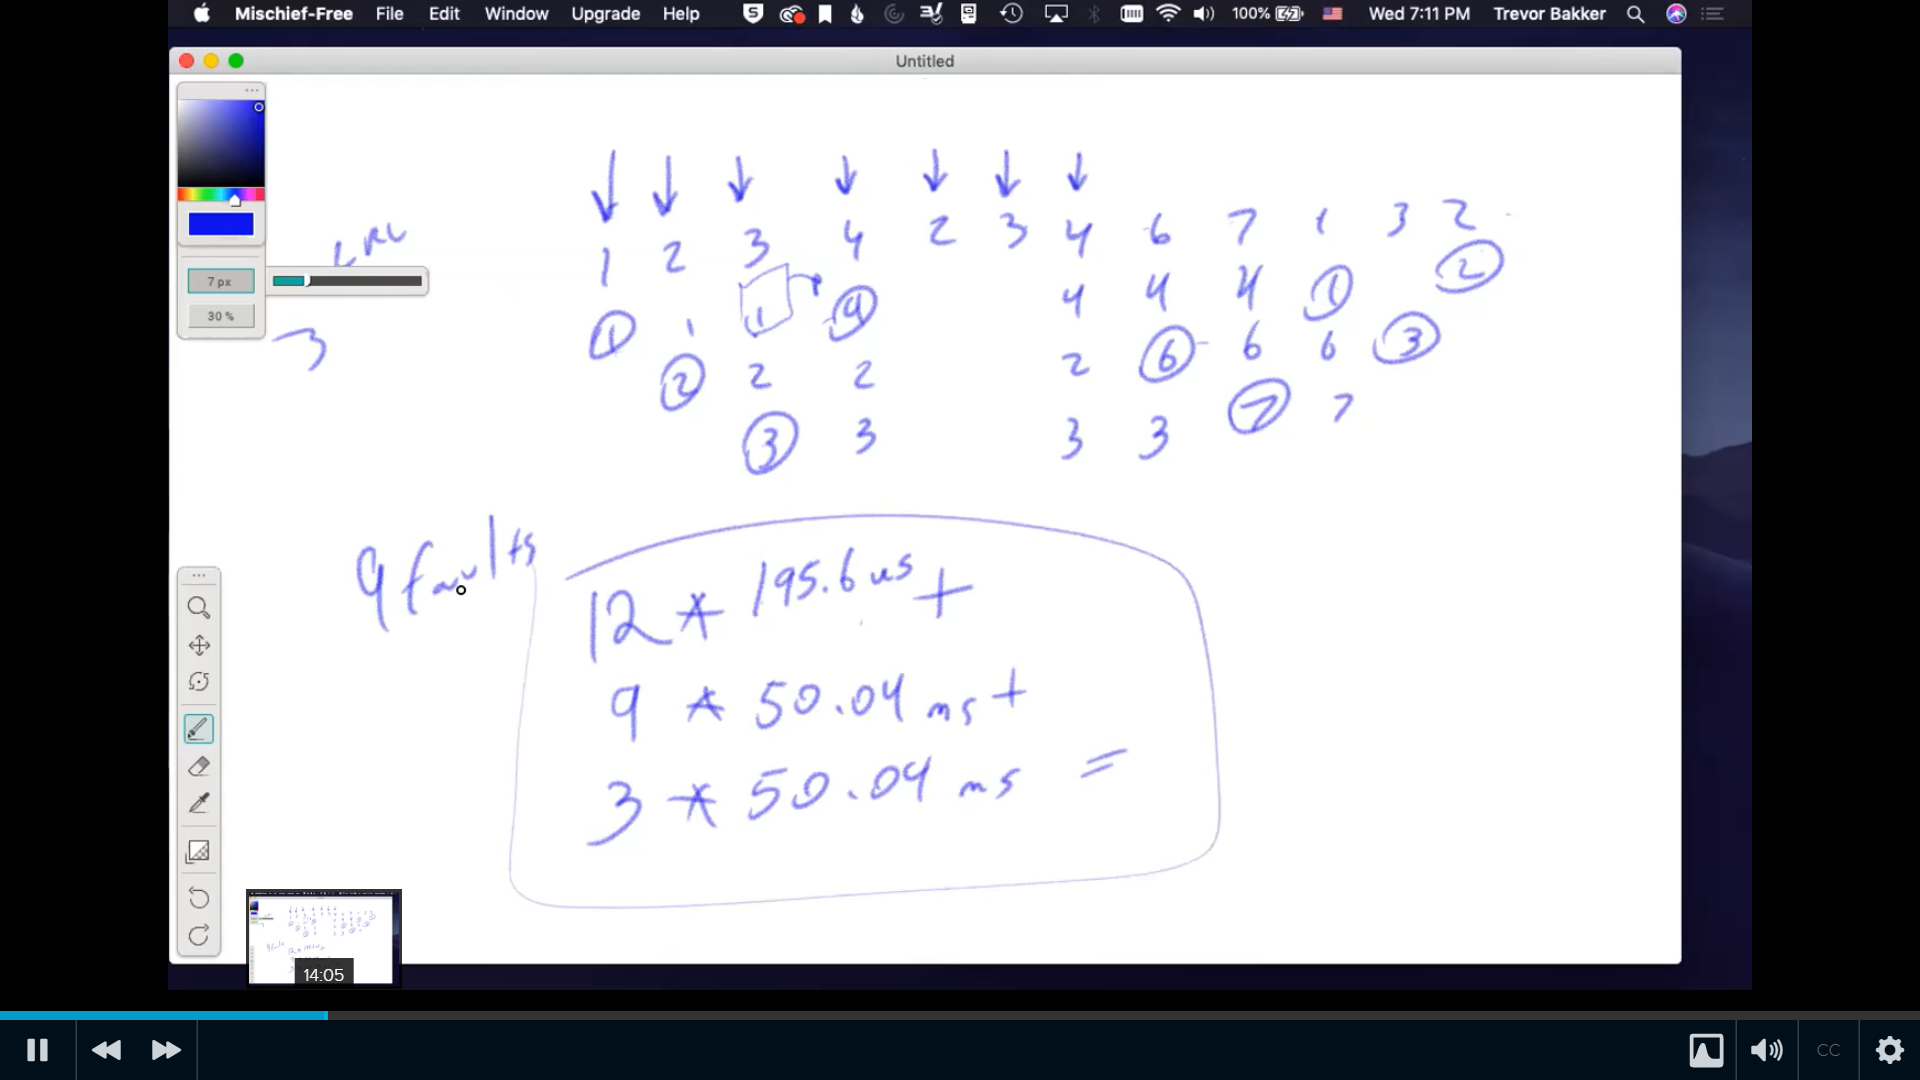 Mischief-Free File Edit Window Upgrade Help 100% Wed 7:11 PM Trevor Bakker
Untitled
1 2 3 4 2 3 4 6 7 1 3 2
LRU
7 px
30 %
3
1 1 1 4 4 4 4 1 2
2 2 2 2 6 6 6 3
3 3 3 3 7 7
9 faults
12 * 195.6 us +
9 * 50.04 ms +
3 * 50.04 ms =
14:05
CC